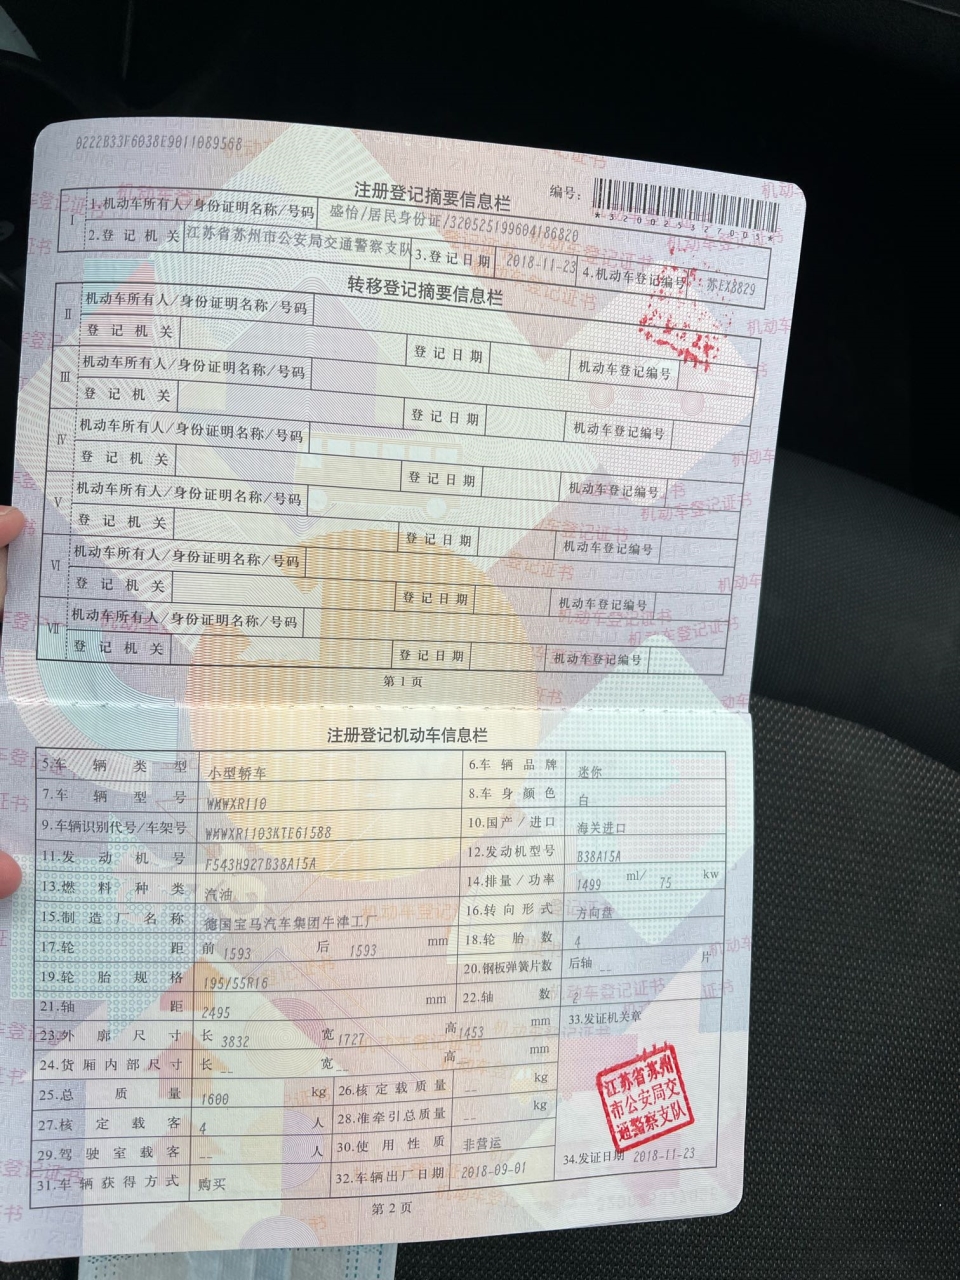 0222B33F6038E9011089568
注册登记摘要信息栏
编号:
*320025327005*
I
1.机动车所有人/身份证明名称/号码 盛怡/居民身份证/320525199604186820
2.登记机关 江苏省苏州市公安局交通警察支队 3.登记日期 2018-11-23 4.机动车登记编号 苏EXB829
转移登记摘要信息栏
II 机动车所有人/身份证明名称/号码
登记机关 登记日期 机动车登记编号
III 机动车所有人/身份证明名称/号码
登记机关 登记日期 机动车登记编号
IV 机动车所有人/身份证明名称/号码
登记机关 登记日期 机动车登记编号
V 机动车所有人/身份证明名称/号码
登记机关 登记日期 机动车登记编号
VI 机动车所有人/身份证明名称/号码
登记机关 登记日期 机动车登记编号
VII 机动车所有人/身份证明名称/号码
登记机关 登记日期 机动车登记编号
第1页
注册登记机动车信息栏
5.车辆类型 小型轿车 6.车辆品牌 迷你
7.车辆型号 WMWXR110 8.车身颜色 白
9.车辆识别代号/车架号 WMWXR1103KTE61588 10.国产/进口 海关进口
11.发动机号 F543H927B38A15A 12.发动机型号 B38A15A
13.燃料种类 汽油 14.排量/功率 1499 ml/ 75 kw
15.制造厂名称 德国宝马汽车集团牛津工厂 16.转向形式 方向盘
17.轮距 前 1593 后 1593 mm 18.轮胎数 4
19.轮胎规格 195/55R16 20.钢板弹簧片数 后轴 -- 片
21.轴距 2495 mm 22.轴数 2
23.外廓尺寸 长 3832 宽 1727 高 1453 mm 33.发证机关章
24.货厢内部尺寸 长 -- 宽 -- 高 -- mm
25.总质量 1600 kg 26.核定载质量 -- kg
27.核定载客 4 人 28.准牵引总质量 -- kg
29.驾驶室载客 -- 人 30.使用性质 非营运
31.车辆获得方式 购买 32.车辆出厂日期 2018-09-01 34.发证日期 2018-11-23
江苏省苏州
市公安局交
通警察支队
第2页